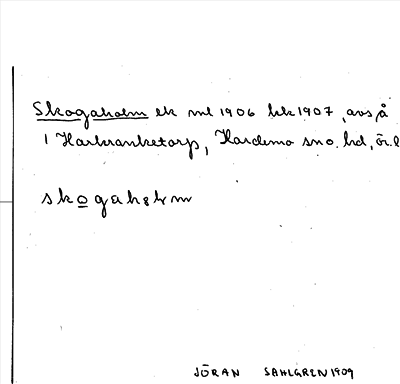 Skogaholm ek ml 1906 hk 1907, avs å
1 Harkranketorp, Hardemo sno. hd, ör. l
skogaholm
JÖRAN SAHLGREN 1909